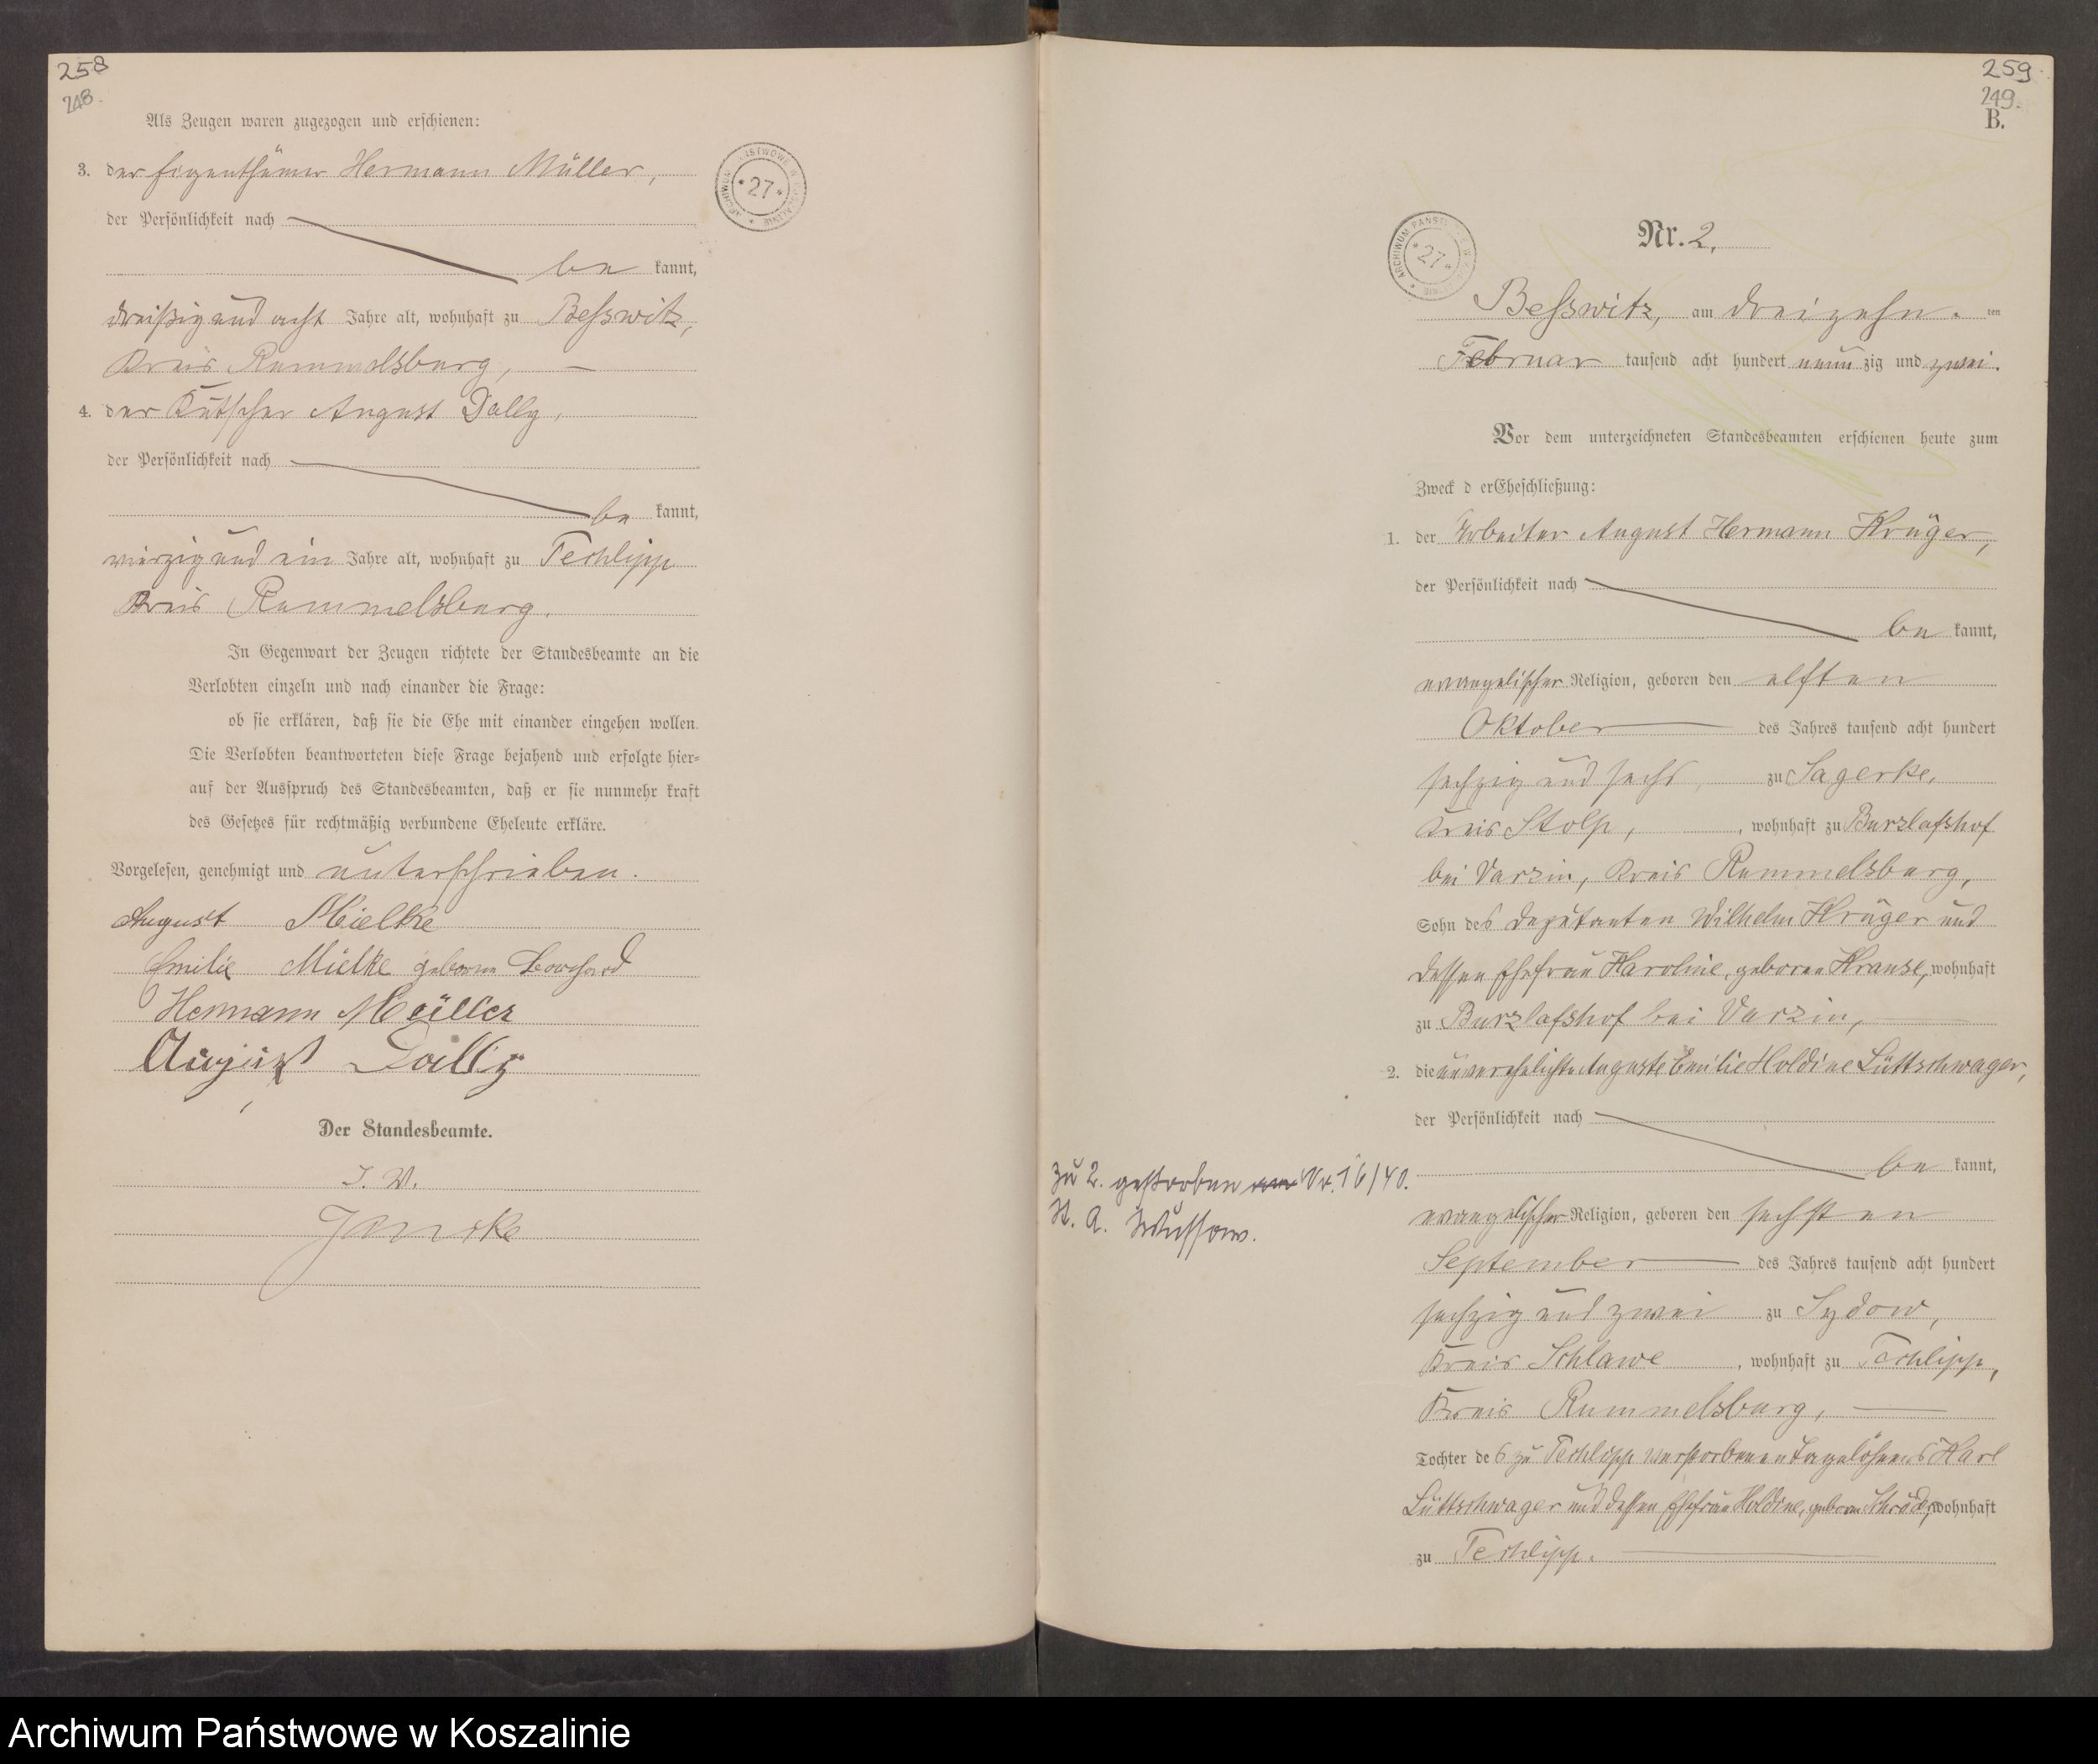 258
248.
Als Zeugen waren zugezogen und erschienen:
3. der Eigenthümer Hermann Müller,
der Persönlichkeit nach
be kannt,
dreißig und acht Jahre alt, wohnhaft zu Besswitz,
Kreis Rummelsburg,
4. der Kutscher August Dally,
der Persönlichkeit nach
be kannt,
vierzig und ein Jahre alt, wohnhaft zu Techlipp
Kreis Rummelsburg.
In Gegenwart der Zeugen richtete der Standesbeamte an die
Verlobten einzeln und nach einander die Frage:
ob sie erklären, daß sie die Ehe mit einander eingehen wollen.
Die Verlobten beantworteten diese Frage bejahend und erfolgte hier-
auf der Ausspruch des Standesbeamten, daß er sie nunmehr kraft
des Gesetzes für rechtmäßig verbundene Eheleute erkläre.
Vorgelesen, genehmigt und unterschrieben.
August Mielke
Emilie Mielke geborne Borchard
Hermann Müller
August Dally
Der Standesbeamte.
I. V.
ARCHIWUM PAŃSTWOWE W KOSZALINIE
* 27 *
259
249.
B.
ARCHIWUM PAŃSTWOWE W KOSZALINIE
* 27 *
Nr. 2.
Besswitz, am dreizehn ten
Februar tausend acht hundert neun zig und zwei.
Vor dem unterzeichneten Standesbeamten erschienen heute zum
Zweck d erEheschließung:
1. der Arbeiter August Hermann Krüger,
der Persönlichkeit nach
be kannt,
evangelischer Religion, geboren den elften
Oktober des Jahres tausend acht hundert
sechzig und sechs, zu Sagerke,
Kreis Stolp, , wohnhaft zu Burzlafshof
bei Varzin, Kreis Rummelsburg,
Sohn des Deputanten Wilhelm Krüger und
dessen Ehefrau Karoline, geborene Krause, wohnhaft
zu Burzlafshof bei Varzin,
2. die unverehelichte Auguste Emilie Holdine Lüttschwager,
der Persönlichkeit nach
be kannt,
evangelischer Religion, geboren den sechsten
September des Jahres tausend acht hundert
sechzig und zwei zu Sydow,
Kreis Schlawe , wohnhaft zu Techlipp,
Kreis Rummelsburg,
Tochter des zu Techlipp verstorbenen Tagelöhners Karl
Lüttschwager und dessen Ehefrau Holdine, geborne wohnhaft
zu Techlipp.
Zu 2. gestorben Nr. 16/40.
St. A. Wussow.
Archiwum Państwowe w Koszalinie